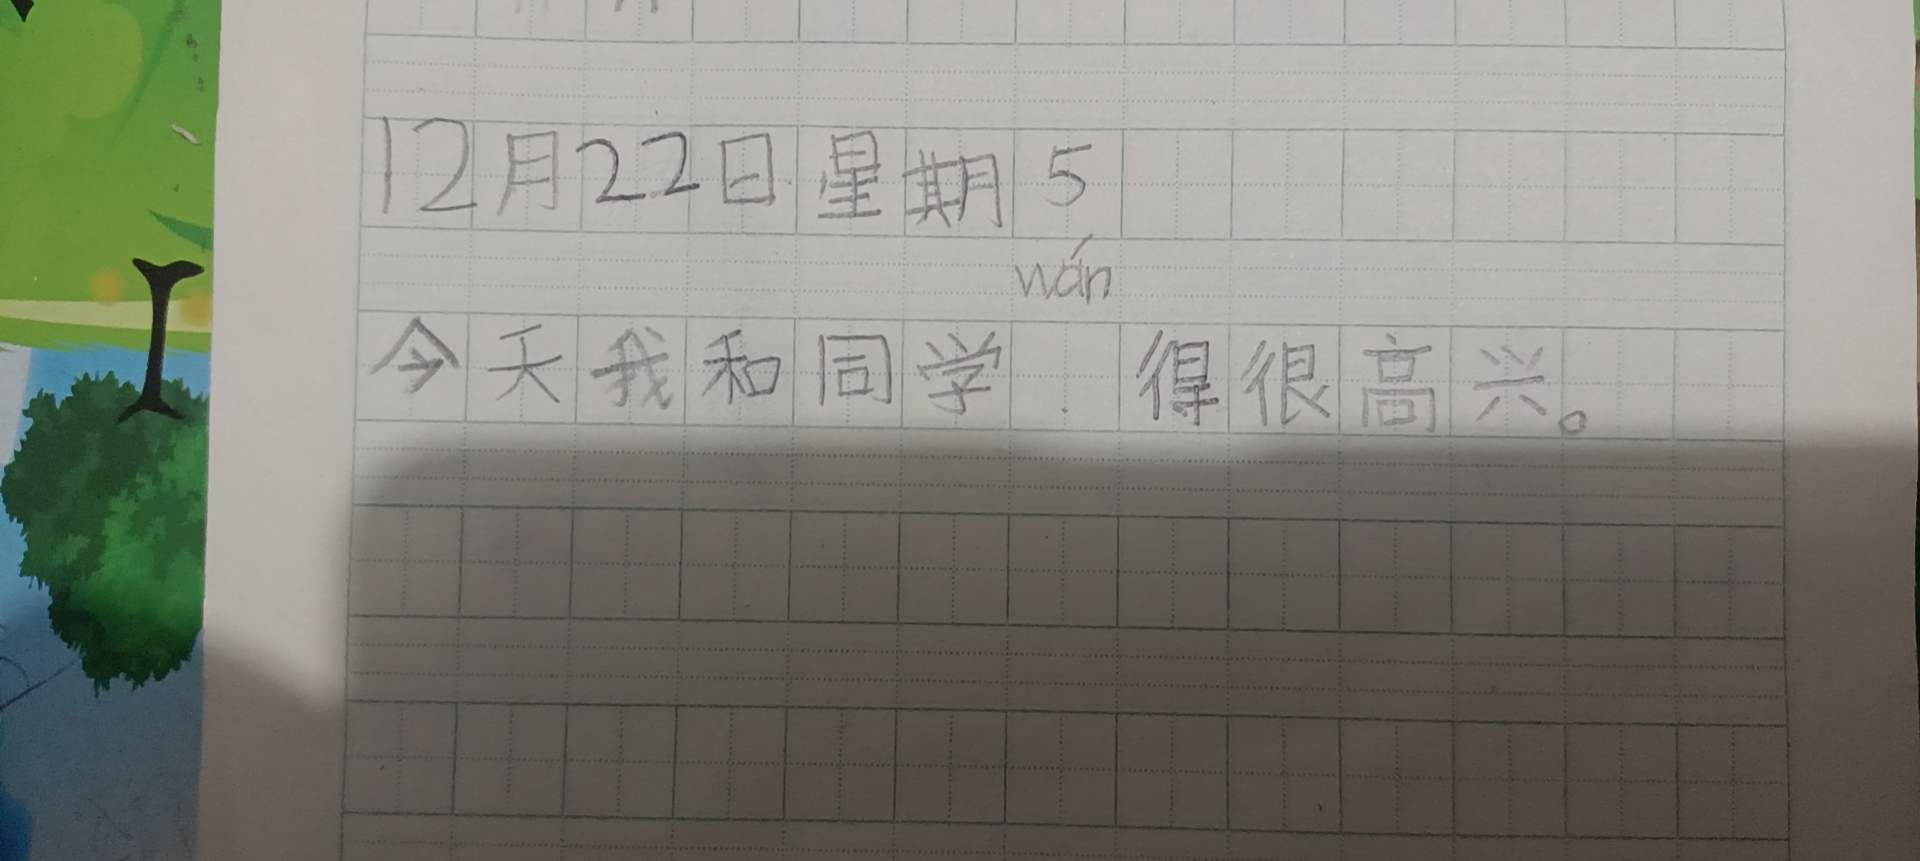 12月22日星期5
wán
今天我和同学 得很高兴。